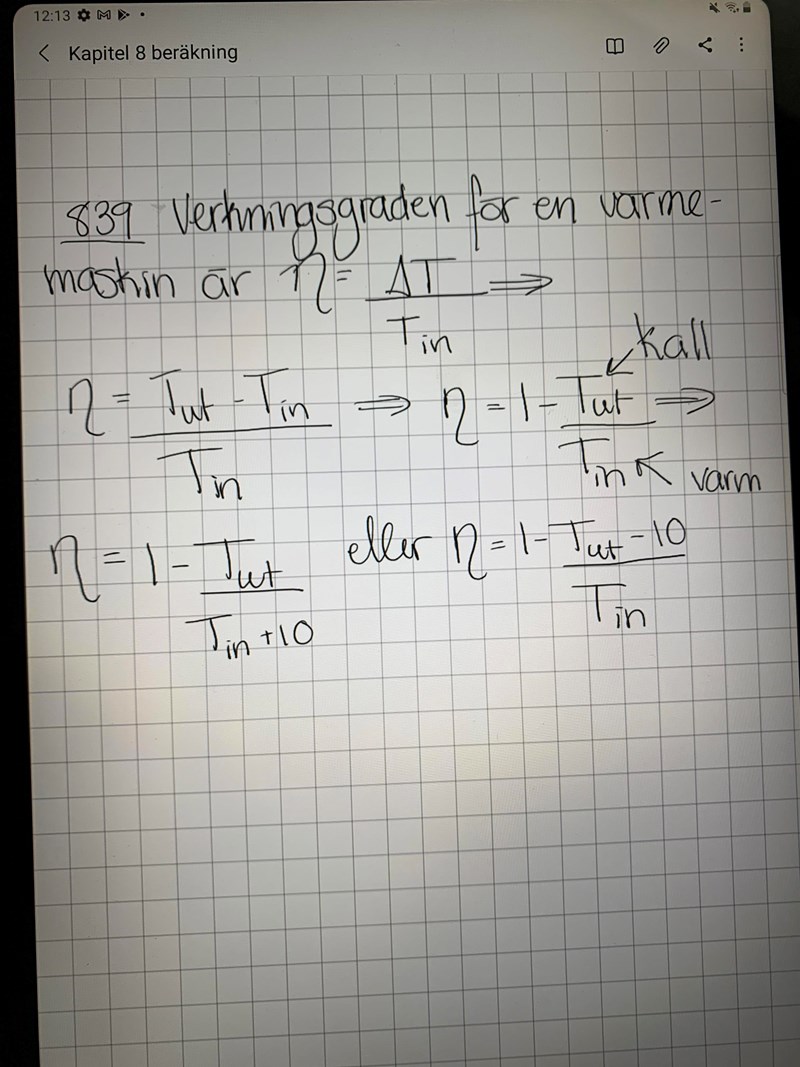 12:13
Kapitel 8 beräkning
839 Verkningsgraden för en värme-
maskin är η = ΔT / Tin ⇒
kall
η = Tut - Tin / Tin ⇒ η = 1 - Tut / Tin ⇒
varm
η = 1 - Tut / Tin + 10 eller η = 1 - Tut - 10 / Tin